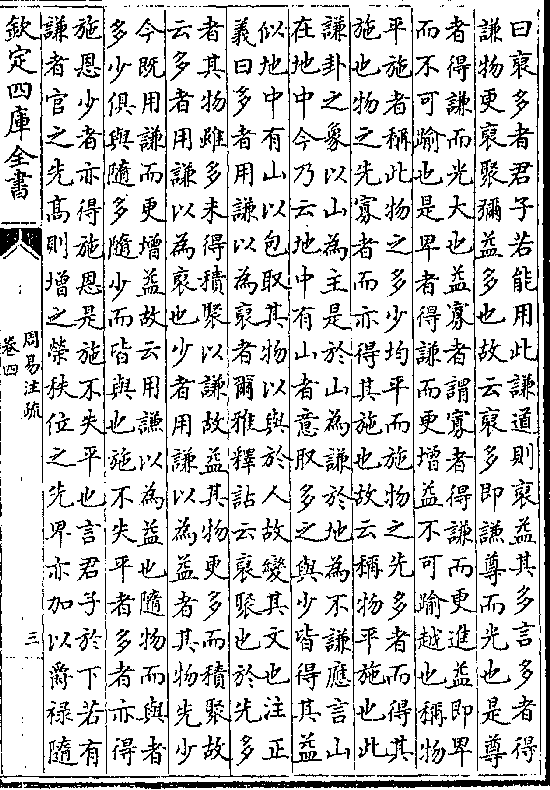 曰裒多者君子若能用此謙道則裒益其多言多者得
謙物更裒聚彌益多也故云裒多即謙尊而光也是尊
者得謙而光大也益寡者謂寡者得謙而更進益即卑
而不可踰也是卑者得謙而更增益不可踰越也稱物
平施者稱此物之多少均平而施物之先多者而得其
施也物之先寡者而亦得其施也故云稱物平施也此
謙卦之象以山為主是於山為謙於地為不謙應言山
在地中今乃云地中有山者意取多之與少皆得其益
似地中有山以包取其物以與於人故變其文也注正
義曰多者用謙以為裒者爾雅釋詁云裒聚也於先多
者其物雖多未得積聚以謙故益其物更多而積聚故
云多者用謙以為裒也少者用謙以為益者其物先少
今既用謙而更增益故云用謙以為益也隨物而與者
多少俱與隨多隨少而皆與也施不失平者多者亦得
施恩少者亦得施恩是施不失平也言君子於下若有
謙者官之先高則增之榮秩位之先卑亦加以爵祿隨
欽定四庫全書
周易注疏
卷四
三